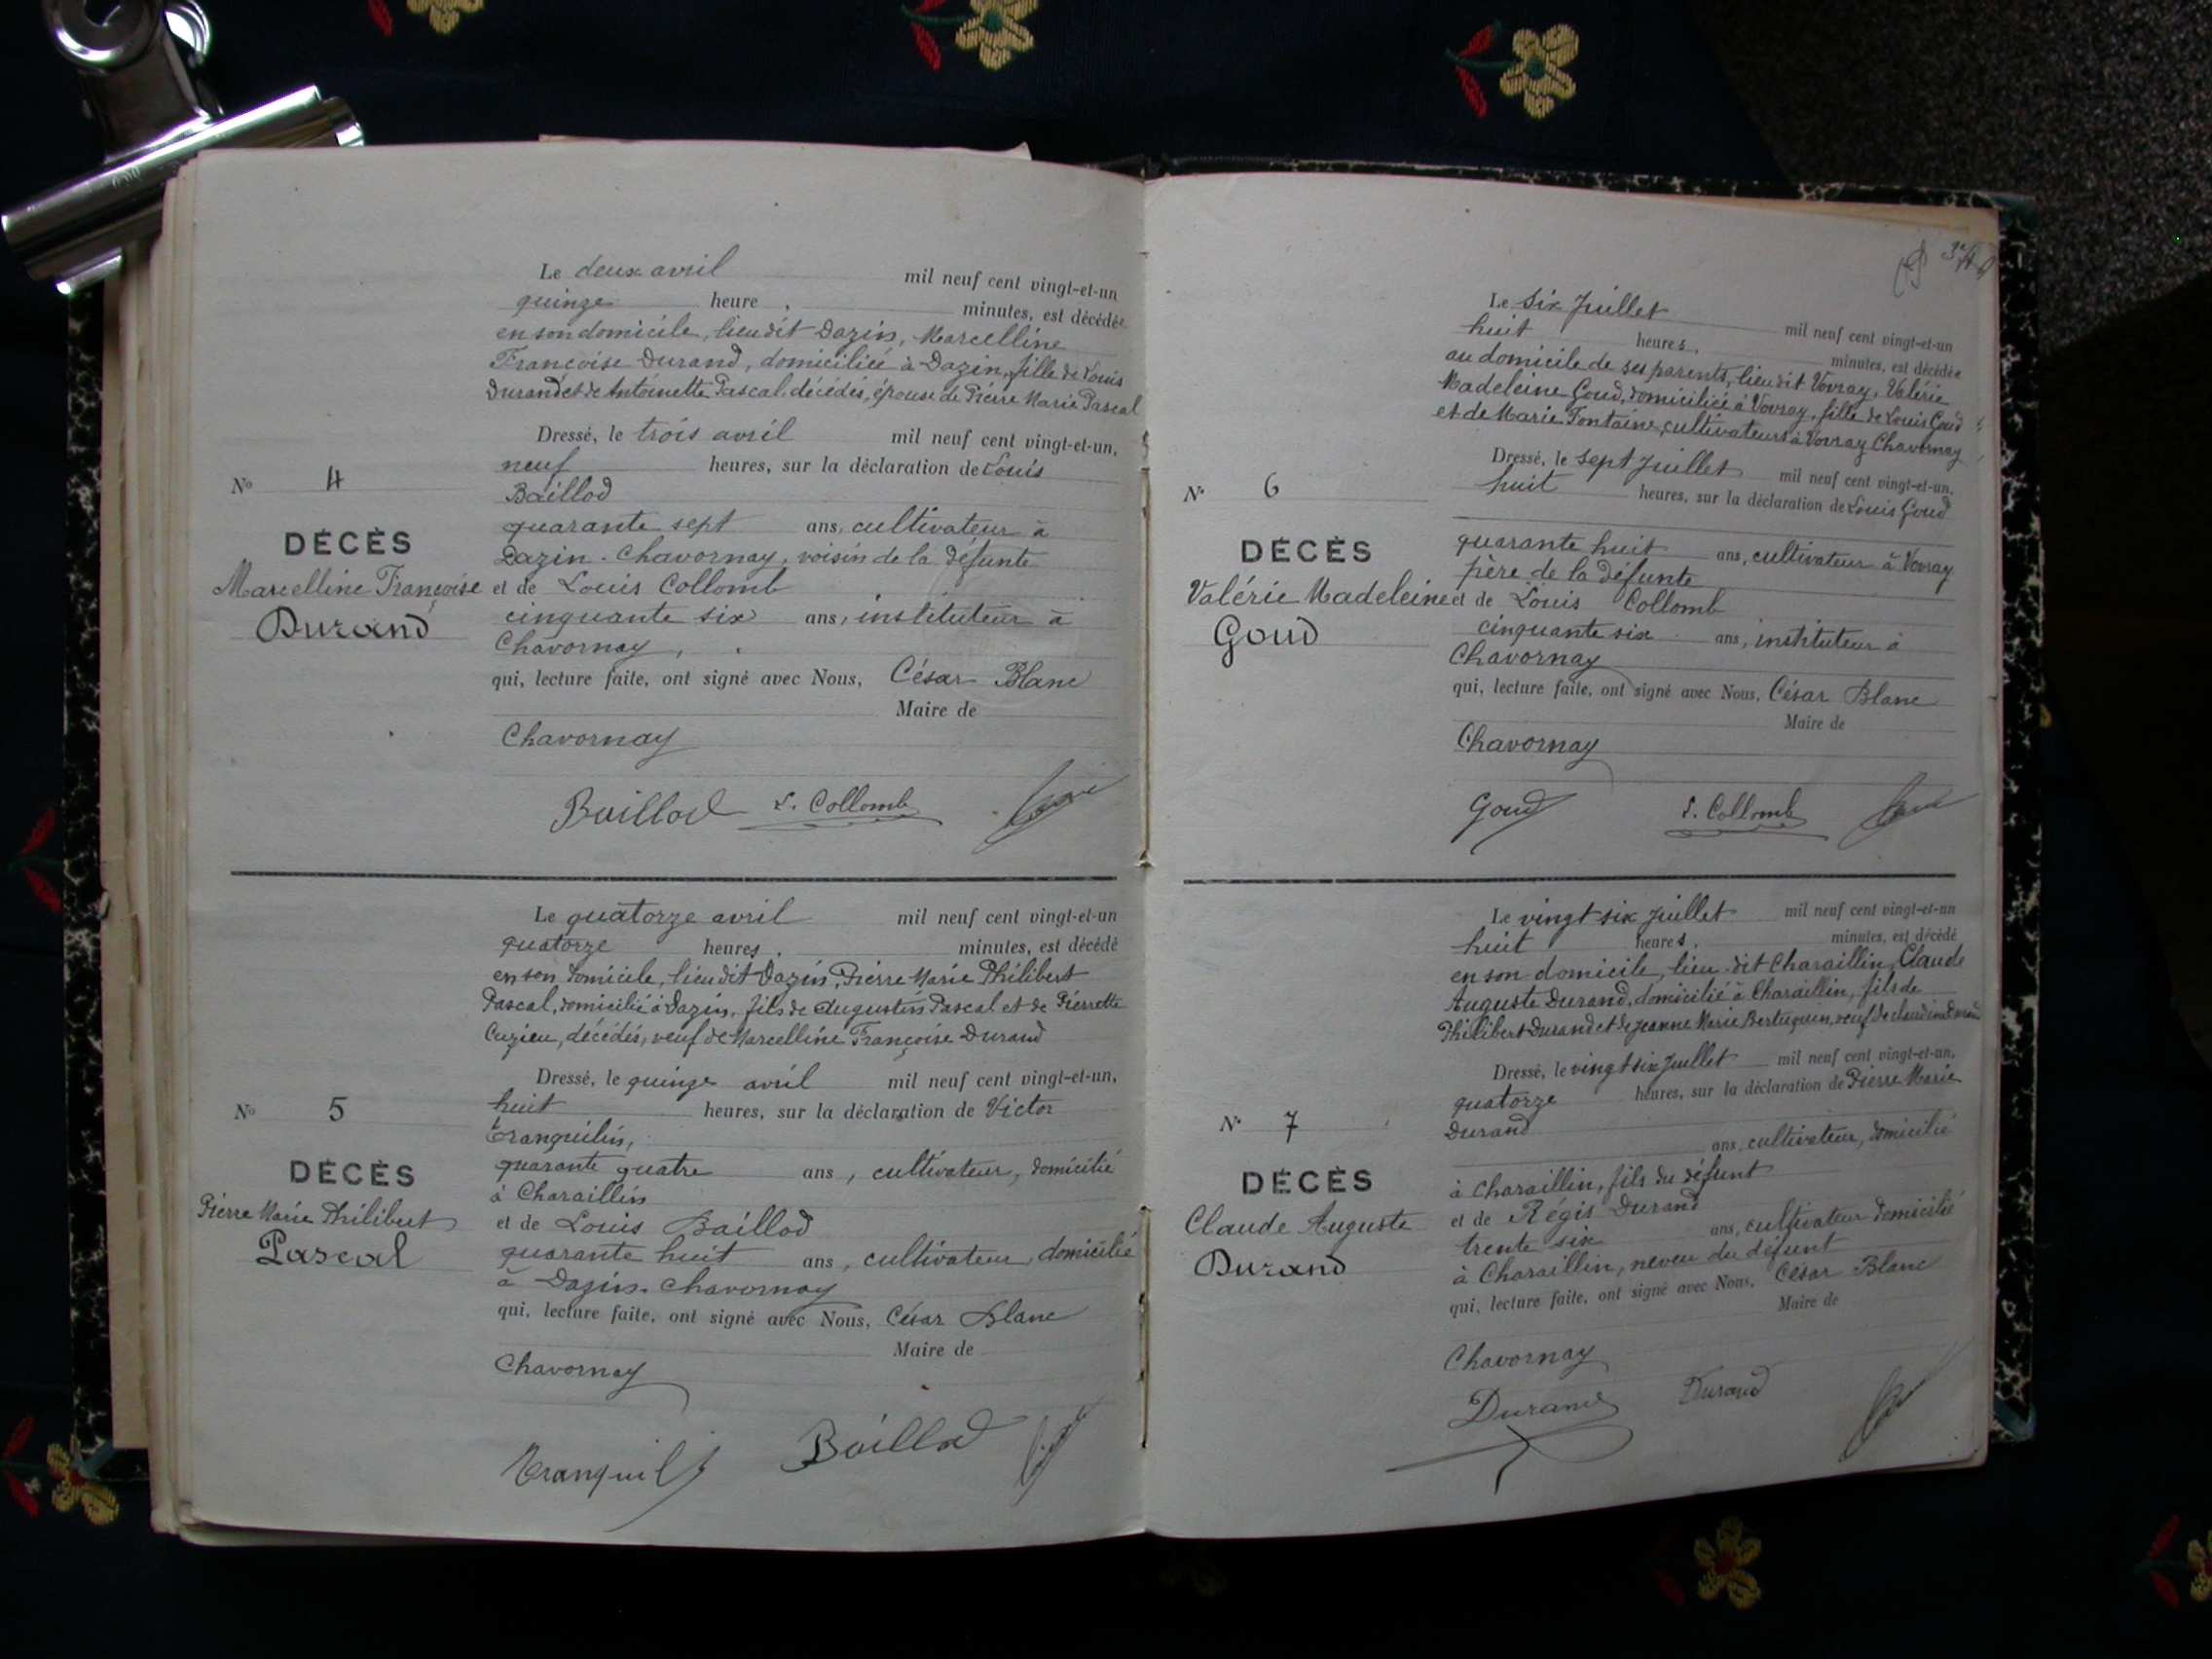 Le deux avril mil neuf cent vingt-et-un
quinze heure , minutes, est décédée
en son domicile, lieu dit Dazin, Marcelline
Françoise Durand, domiciliée à Dazin, fille de Louis
Durand et de Antoinette Pascal décédés, épouse de Pierre Marie Pascal
Dressé, le trois avril mil neuf cent vingt-et-un,
neuf heures, sur la déclaration de Louis
Baillod
quarante sept ans, cultivateur à
Dazin - Chavornay, voisin de la défunte
et de Louis Collomb
cinquante six ans, instituteur à
Chavornay, .
qui, lecture faite, ont signé avec Nous, César Blanc
Maire de
Chavornay
Baillod L. Collomb
No 4
DÉCÈS
Marcelline Françoise
Durand
Le quatorze avril mil neuf cent vingt-et-un
quatorze heures, minutes, est décédé
en son domicile, lieu dit Dazin, Pierre Marie Philibert
Pascal, domicilié à Dazin, fils de Augustin Pascal et de Pierrette
Cuzieu, décédés, veuf de Marcelline Françoise Durand
Dressé, le quinze avril mil neuf cent vingt-et-un,
huit heures, sur la déclaration de Victor
Tranquilin,
quarante quatre ans, cultivateur, domicilié
à Charaillin
et de Louis Baillod
quarante huit ans, cultivateur, domicilié
à Dazin. Chavornay
qui, lecture faite, ont signé avec Nous, César Blanc
Maire de
Chavornay
Baillod
No 5
DÉCÈS
Pierre Marie Philibert
Pascal
Le Six Juillet mil neuf cent vingt-et-un
huit heures, minutes, est décédée
au domicile de ses parents, lieu dit Vovray, Valérie
Madeleine Goud, domiciliée à Vovray, fille de Louis Goud
et de Marie Fontaine, cultivateurs à Vovray Chavornay
Dressé, le sept Juillet mil neuf cent vingt-et-un,
huit heures, sur la déclaration de Louis Goud
quarante huit ans, cultivateur à Vovray
père de la défunte
et de Louis Collomb
cinquante six ans, instituteur à
Chavornay
qui, lecture faite, ont signé avec Nous, César Blanc
Maire de
Chavornay
Goud L. Collomb
No 6
DÉCÈS
Valérie Madeleine
Goud
Le vingt six Juillet mil neuf cent vingt-et-un
huit heures, minutes, est décédé
en son domicile, lieu-dit Charaillin, Claude
Auguste Durand, domicilié à Charaillin, fils de
Philibert Durand et de Jeanne Marie veuf de Claudine Durand
Dressé, le vingt six Juillet mil neuf cent vingt-et-un,
quatorze heures, sur la déclaration de Pierre Marie
Durand
ans, cultivateur, domicilié
à Charaillin, fils du défunt
et de Régis Durand
trente six ans, cultivateur domicilié
à Charaillin, neveu du défunt
qui, lecture faite, ont signé avec Nous, César Blanc
Maire de
Chavornay
Durand Durand
No 7
DÉCÈS
Claude Auguste
Durand